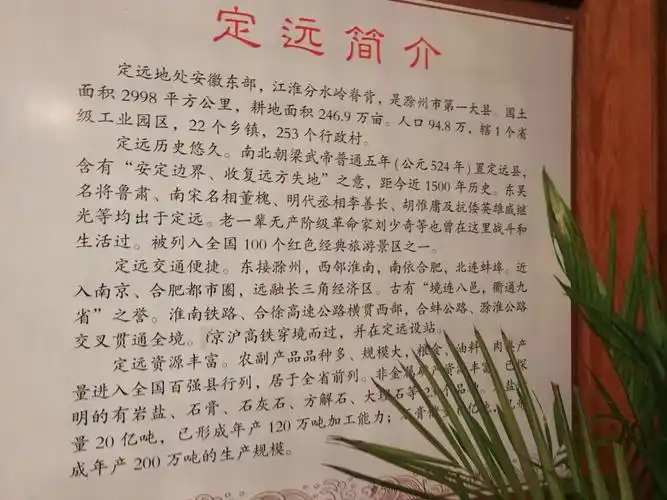 定远简介
定远地处安徽东部，江淮分水岭脊背，是滁州市第一大县。国土
面积 2998 平方公里，耕地面积 246.9 万亩。人口 94.8 万，辖 1 个省
级工业园区，22 个乡镇，253 个行政村。
定远历史悠久。南北朝梁武帝普通五年（公元 524 年）置定远县，
含有“安定边界、收复远方失地”之意，距今近 1500 年历史。东吴
名将鲁肃、南宋名相董槐、明代丞相李善长、胡惟庸及抗倭英雄戚继
光等均出于定远。老一辈无产阶级革命家刘少奇等也曾在这里战斗和
生活过。被列入全国 100 个红色经典旅游景区之一。
定远交通便捷。东接滁州，西邻淮南，南依合肥，北连蚌埠。近
入南京、合肥都市圈，远融长三角经济区。古有“境连八邑，衢通九
省”之誉。淮南铁路、合徐高速公路横贯西部，合蚌公路、滁淮公路
交叉贯通全境。京沪高铁穿境而过，并在定远设站。
定远资源丰富。农副产品品种多、规模大，粮食、油料、肉类产
量进入全国百强县行列，居于全省前列。非金属矿产资源丰富，已探
明的有岩盐、石膏、石灰石、方解石、大理石等
量 20 亿吨，已形成年产 120 万吨加工能力；石膏
成年产 200 万吨的生产规模。